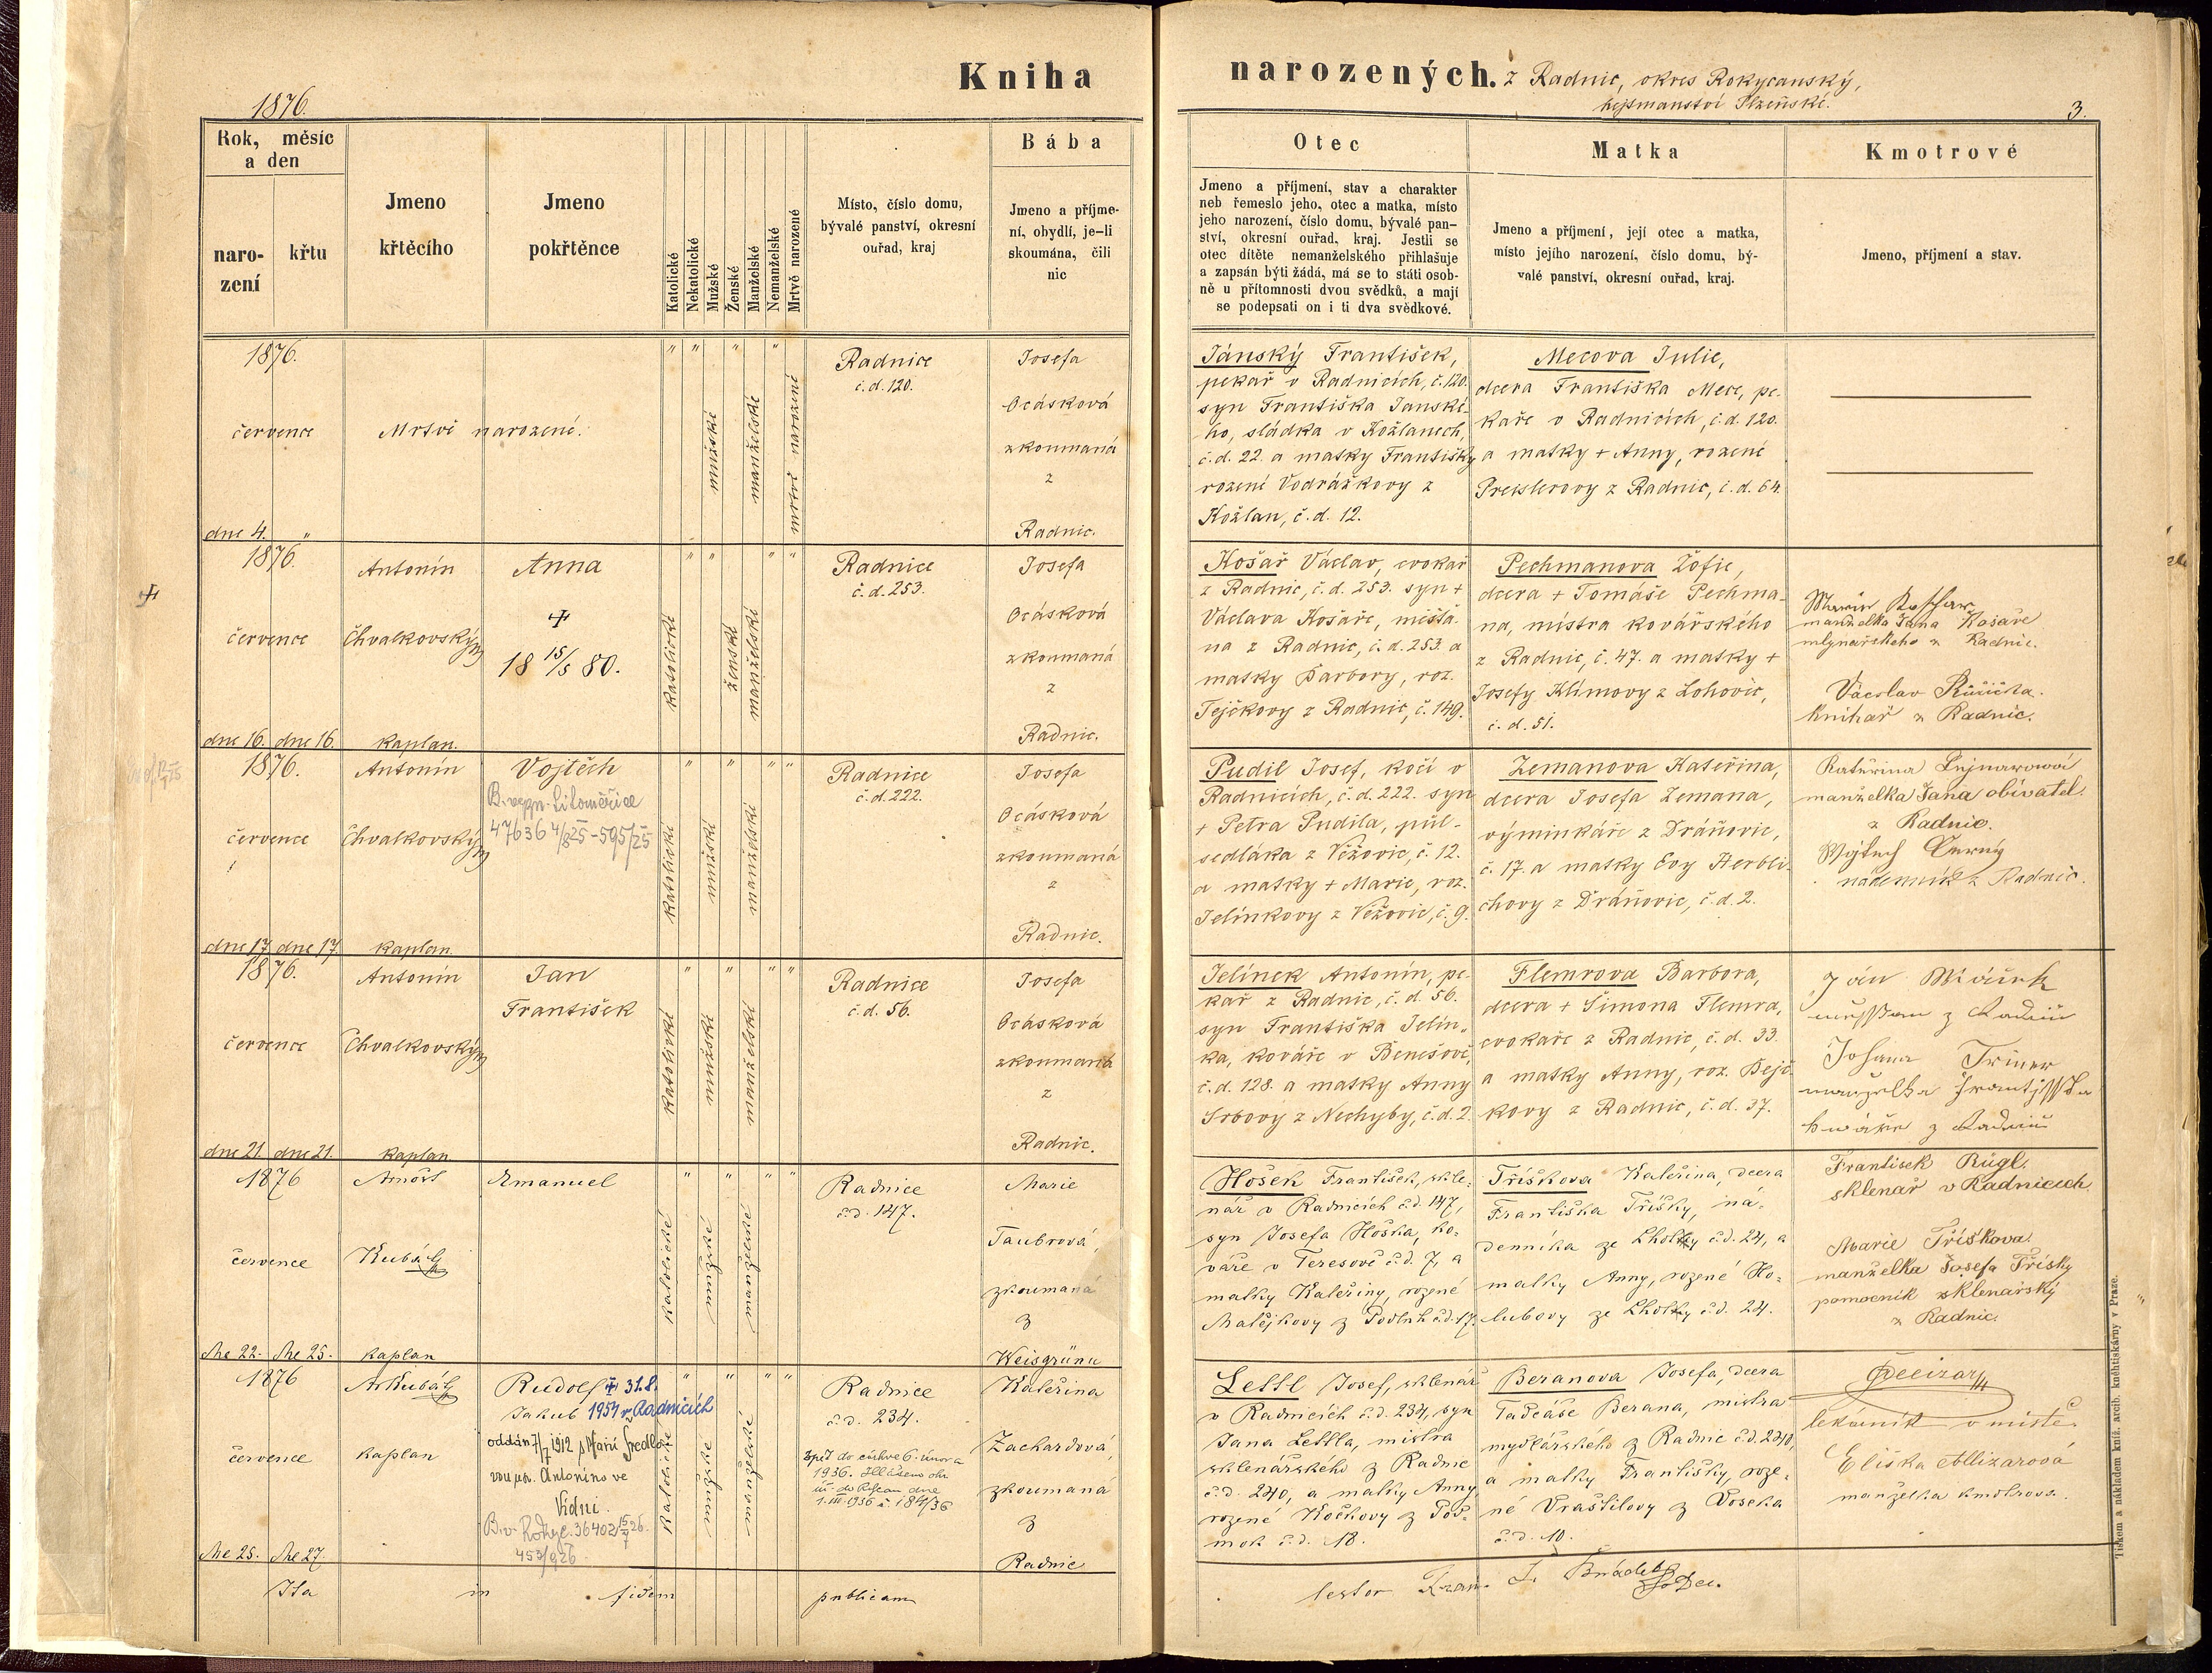 Kniha
narozených. z Radnic, okres Rokycanský,
hejtmanství Plzeňské.
1876.
3.
Rok, měsíc
a den
naro-
zení
křtu
Jmeno
křtěcího
Jmeno
pokřtěnce
Katolické
Nekatolické
Mužské
Ženské
Manželské
Nemanželské
Mrtvě narozené
Místo, číslo domu,
bývalé panství, okresní
ouřad, kraj
Bába
Jmeno a příjme-
ní, obydlí, je-li
skoumána, čili
nic
Otec
Jmeno a příjmení, stav a charakter
neb řemeslo jeho, otec a matka, místo
jeho narození, číslo domu, bývalé pan-
ství, okresní ouřad, kraj. Jestli se
otec dítěte nemanželského přihlašuje
a zapsán býti žádá, má se to státi osob-
ně u přítomnosti dvou svědků, a mají
se podepsati on i ti dva svědkové.
Matka
Jmeno a příjmení, její otec a matka,
místo jejího narození, číslo domu, bý-
valé panství, okresní ouřad, kraj.
Kmotrové
Jmeno, příjmení a stav.
1876.
července
dne 4. "
Mrtvě narozené.
" " " "
mužské
manželské
mrtvě narozené
Radnice
č. d. 120.
Josefa
Ocásková
zkoumaná
z
Radnic.
Jánský František,
pekař v Radnicích, č. 120.
syn Františka Janské-
ho, sládka v Kožlanech,
č. d. 22. a matky Františky
rozené Vodrážkovy z
Kožlan, č. d. 12.
Mecova Julie,
dcera Františka Mece, pe-
kaře v Radnicích, č. d. 120.
a matky + Anny, rozené
Preislerovy z Radnic, č. d. 64.
1876.
července
dne 16. dne 16.
Antonín
Chvalkovský
kaplan.
Anna
+
18 15/5 80.
" " " "
katolické
ženské
manželské
Radnice
č. d. 253.
Josefa
Ocásková
zkoumaná
z
Radnic.
Košař Václav, cvokař
z Radnic, č. d. 253. syn +
Václava Košaře, měšťa-
na z Radnic, č. d. 253. a
matky Barbory, roz.
Tejčkovy z Radnic, č. 149.
Pechmanova Žofie,
dcera + Tomáše Pechma-
na, mistra kovářského
z Radnic, č. 47. a matky +
Josefy Klímovy z Lohovic,
č. d. 51.
manželka Jana Košaře
mlynařského z Radnic.
Václav Růžička.
knihař z Radnic.
1876.
července
dne 17. dne 17.
Antonín
Chvalkovský
kaplan.
Vojtěch
47636 4/8 25 - 595/25
" " " "
katolické
mužské
manželské
Radnice
č. d. 222.
Josefa
Ocásková
zkoumaná
z
Radnic.
Pudil Josef, kočí v
Radnicích, č. d. 222. syn
+ Petra Pudila, půl-
sedláka z Věžovic, č. 12.
a matky + Marie, roz.
Jelínkovy z Věžovic, č. 9.
Zemanova Kateřina,
dcera Josefa Zemana,
výminkáře z Dráňovic,
č. 17. a matky Evy Herbli-
chovy z Dráňovic, č. d. 2.
manželka Jana obivatel.
z Radnic.
Wojtech Černý
nádenník z Radnic.
1876.
července
dne 21. dne 21.
Antonín
Chvalkovský
kaplan
Jan
František
" " " "
katolické
mužské
manželské
Radnice
č. d. 56.
Josefa
Ocásková
zkoumaná
z
Radnic.
Jelínek Antonín, pe-
kař z Radnic, č. d. 56.
syn Františka Jelín-
ka, kováře v Benešově,
č. d. 128. a matky Anny
Srbovy z Nechyby, č. d. 2.
Flemrova Barbora,
dcera + Šimona Flemra,
cvokaře z Radnic, č. d. 33.
a matky Anny, roz. Bejč-
kovy z Radnic, č. d. 37.
1876
července
dne 22. dne 25.
Arnošt
Kubát
kaplan
Emanuel
" " " "
katolické
mužské
manželské
Radnice
č. d. 147.
Marie
Taubrová,
zkoumaná
z
Weisgrünu
Hošek František, skle-
nář v Radnicích č. d. 147,
syn Josefa Hoška, ko-
váře v Teresově č. d. 7, a
matky Kateřiny, rozené
Matějkovy z
Tříškova Kateřina, dcera
Františka Tříšky, ná-
denníka ze Lhotky č. d. 24, a
matky Anny, rozené Ho-
lubovy ze Lhotky č. d. 24.
František Rügl.
sklenář v Radnicích
Marie Tříškova
manželka Josefa Třísky
pomocník sklenářský
z Radnic.
1876
července
dne 25. dne 27.
Ar. Kubát
kaplan
Rudolf + 31.8.
Jakub 1954 v Radnicích
oddán 7/7 1912 s Marií
Antonína ve
Vídni.
" " " "
katolické
mužské
manželské
Radnice
č. d. 234.
Zpět do církve 6. února
1936.
1. III. 1936 č. 184/36
Kateřina
Zachardová,
zkoumaná
z
Radnic
Lettl Josef, sklenář
v Radnicích č. d. 234, syn
Jana Lettla, mistra
sklenářského z Radnic
č. d. 240, a matky Anny
rozené Kočkovy z Pod-
mok č. d. 18.
Beranova Josefa, dcera
Tadeáše Berana, mistra
mydlářského z Radnic č. d. 240,
a matky Františky, roze-
né Vraštilovy z Voseka
č. d. 10.
lekárník v místě.
Eliška
manželka kmotrova.
Ita in fidem publicam
Tiskem a nákladem kníž. arcib. knihtiskárny v Praze.